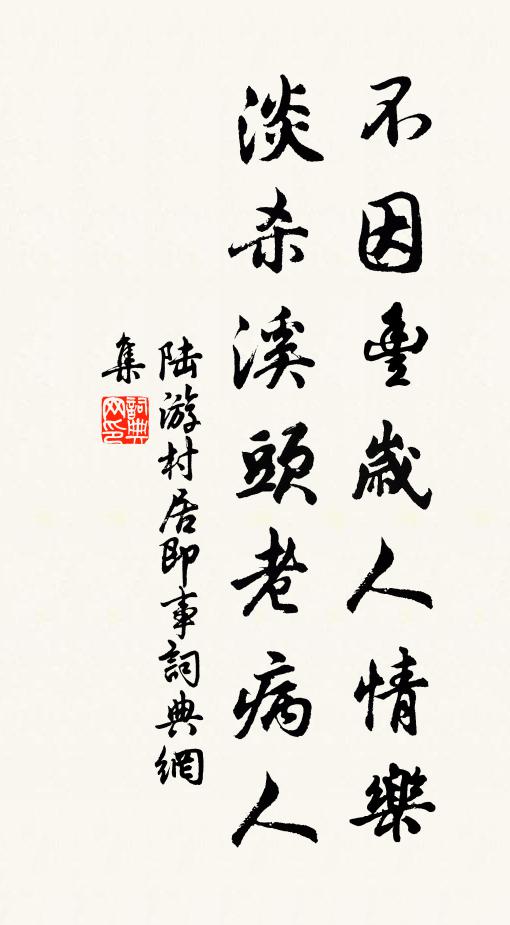 不因豐歲人情樂
淡殺溪頭老病人
陆游村居即事詞典網
集
詞典
网印